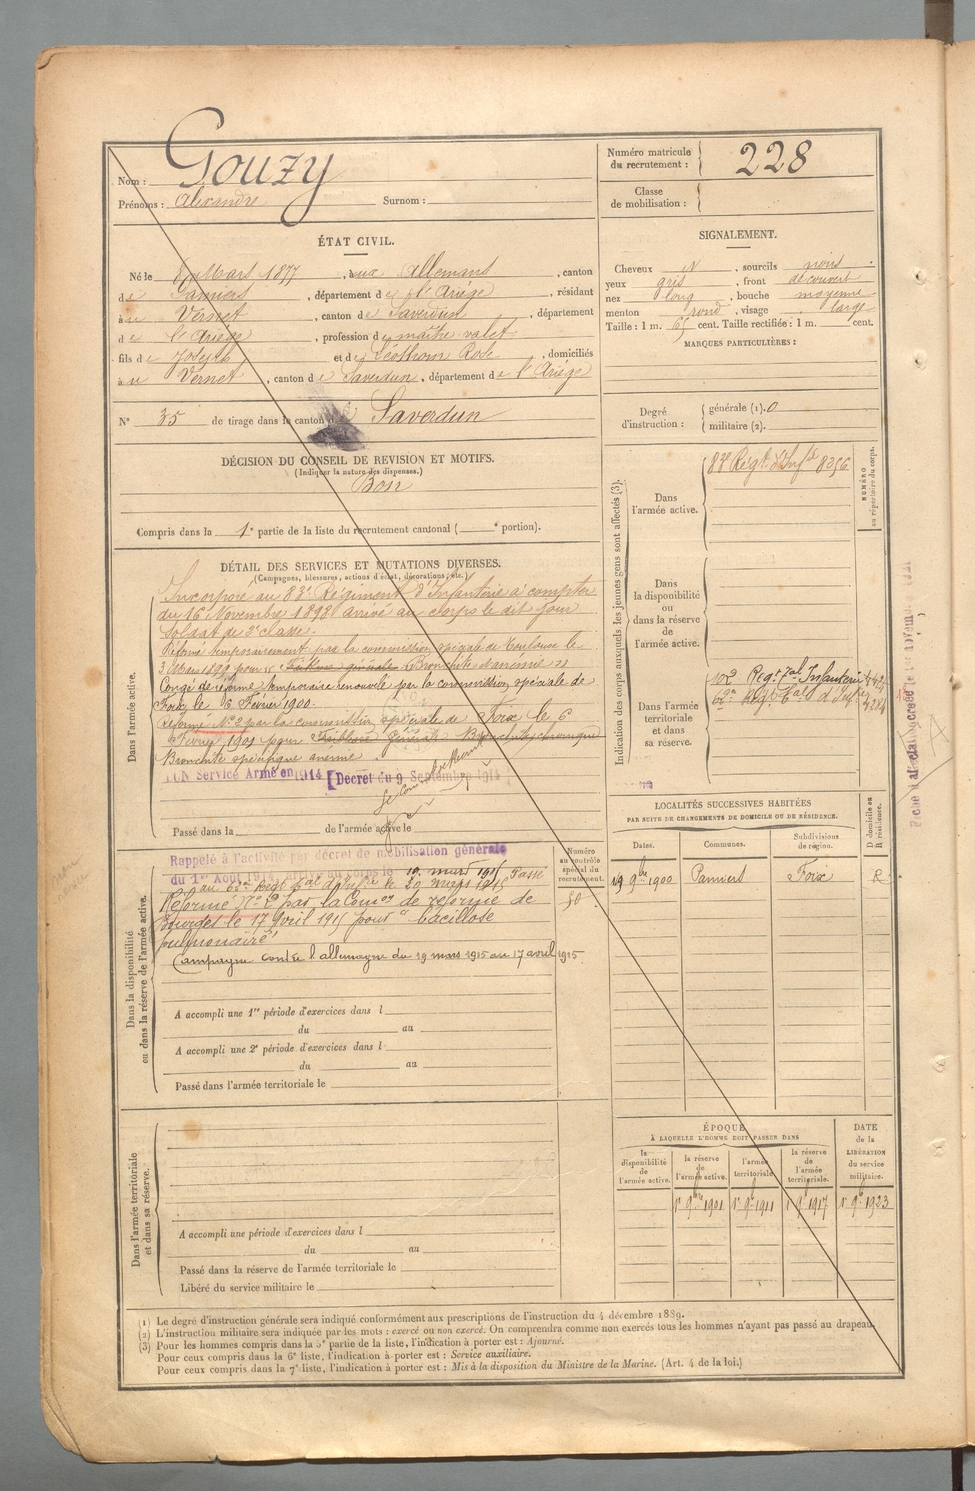 Nom : Gouzy
Prénoms : Alexandre Surnom :
Numéro matricule du recrutement : 228
Classe de mobilisation :
ÉTAT CIVIL.
Né le 8 Mars 1877, aux Allemans, canton
de Pamiers, département de l'Ariège, résidant
à u Vernet, canton de Saverdun, département
de l'Ariège, profession de maître valet
fils de Joseph et de Léothom Rose, domiciliés
à u Vernet, canton de Saverdun, département de l'Ariège
N° 35 de tirage dans le canton de Saverdun
SIGNALEMENT.
Cheveux N, sourcils noirs
yeux gris, front découvert
nez long, bouche moyenne
menton rond, visage large
Taille : 1 m. 65 cent. Taille rectifiée : 1 m. cent.
MARQUES PARTICULIÈRES :
Degré d'instruction : générale (1). 0
militaire (2).
DÉCISION DU CONSEIL DE REVISION ET MOTIFS.
(Indiquer la nature des dispenses.)
Bon
Compris dans la 1e partie de la liste du recrutement cantonal ( e portion).
DÉTAIL DES SERVICES ET MUTATIONS DIVERSES.
(Campagnes, blessures, actions d'éclat, décorations, etc.)
Dans l'armée active.
Incorporé au 83e Régiment d'Infanterie à compter
du 16 Novembre 1898 arrivé au corps le dit jour
soldat de 2e classe.
Réformé temporairement par la commission spéciale de Toulouse le
3 Mars 1899 pour Faiblesse générale Bronchite et anémie
Congé de réforme temporaire renouvelé par la commission spéciale de
Foix, le 6 Février 1900.
Réformé N° 2 par la commission spéciale de Foix le 6
Février 1901 pour Faiblesse Générale Bronchite chronique
Bronchite spécifique anémie.
Service Armé en 1914 [Décret du 9 Septembre 1914
Passé dans la de l'armée active le
Dans la disponibilité ou dans la réserve de l'armée active.
Rappelé à l'activité par décret de mobilisation générale
du 1er Août 1914, arrivé au corps le 19 mars 1915 Passé
au 62e Regt tal d'Infie le 20 mars 1915
Réformé N° 2 par la Comon de réforme de
Lourdes le 17 Avril 1915 pour bacillose
pulmonaire
Campagne contre l'allemagne du 19 mars 1915 au 17 avril 1915
Numéro au contrôle spécial du recrutement.
50
A accompli une 1re période d'exercices dans l
du au
A accompli une 2e période d'exercices dans l
du au
Passé dans l'armée territoriale le
Dans l'armée territoriale et dans sa réserve.
A accompli une période d'exercices dans l
du au
Passé dans la réserve de l'armée territoriale le
Libéré du service militaire le
Indication des corps auxquels les jeunes gens sont affectés (3).
Dans l'armée active.
83e Régt d'Infie 8356
NUMÉRO au répertoire du corps.
Dans la disponibilité ou dans la réserve de l'armée active.
Dans l'armée territoriale et dans sa réserve.
LOCALITÉS SUCCESSIVES HABITÉES
PAR SUITE DE CHANGEMENTS DE DOMICILE OU DE RÉSIDENCE.
Dates. Communes. Subdivisions de région. D domicile ou R résidence.
19 9bre 1900 Pamiers Foix R
ÉPOQUE
À LAQUELLE L'HOMME DOIT PASSER DANS
la disponibilité de l'armée active.
la réserve de l'armée active.
l'armée territoriale.
la réserve de l'armée territoriale.
DATE de la LIBÉRATION du service militaire.
1er 9bre 1901 1er 9bre 1911 1er 9bre 1917 1er 9bre 1923
(1) Le degré d'instruction générale sera indiqué conformément aux prescriptions de l'instruction du 4 décembre 1889.
(2) L'instruction militaire sera indiquée par les mots : exercé ou non exercé. On comprendra comme non exercés tous les hommes n'ayant pas passé au drapeau.
(3) Pour les hommes compris dans la 5e partie de la liste, l'indication à porter est : Ajourné.
Pour ceux compris dans la 6e liste, l'indication à porter est : Service auxiliaire.
Pour ceux compris dans la 7e liste, l'indication à porter est : Mis à la disposition du Ministre de la Marine. (Art. 4 de la loi.)